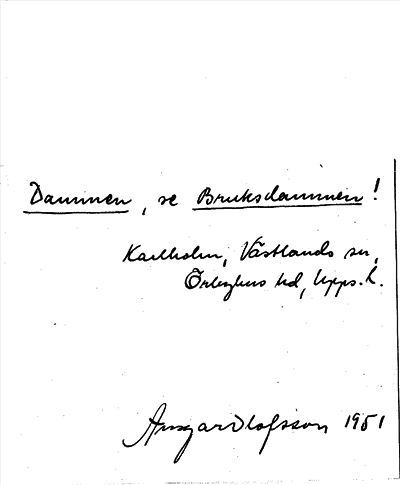 Dammen, se Bruksdammen!
Karlholm, Västlands sn,
Örbyhus hd, Upps. l.
Ansgar Olofsson 1951